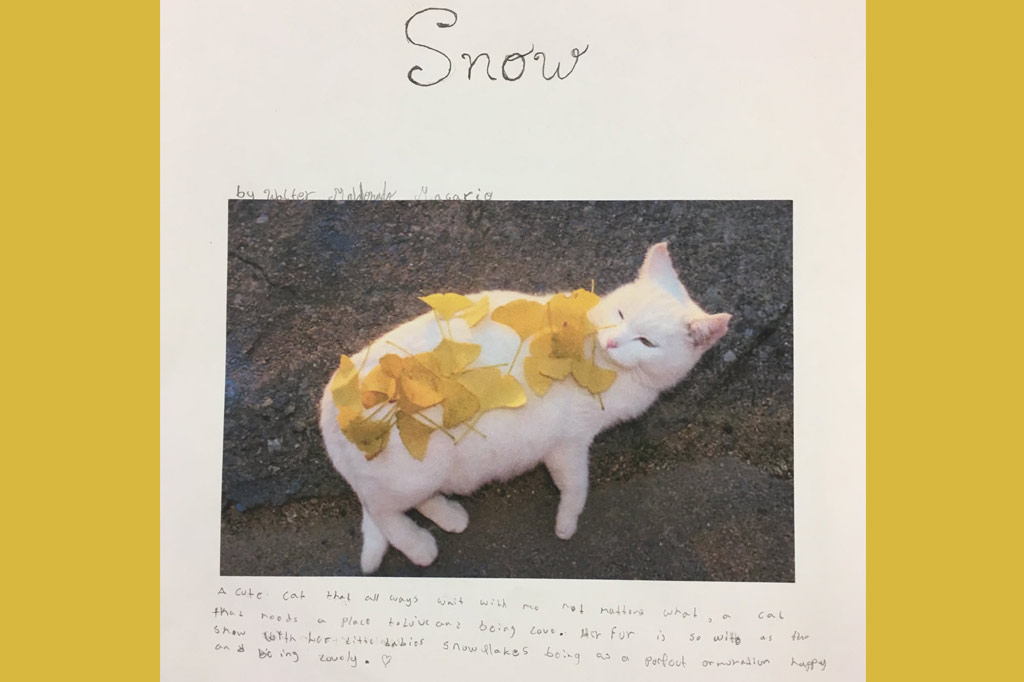 Snow
by Walter Maldonado Macario
A cute cat that all ways wait with me not matters what, a cat
that needs a place to live and being love. Her fur is so wite as the
snow with her little babies snowflakes being as a perfect ormuration happy
and being lovely. ♡